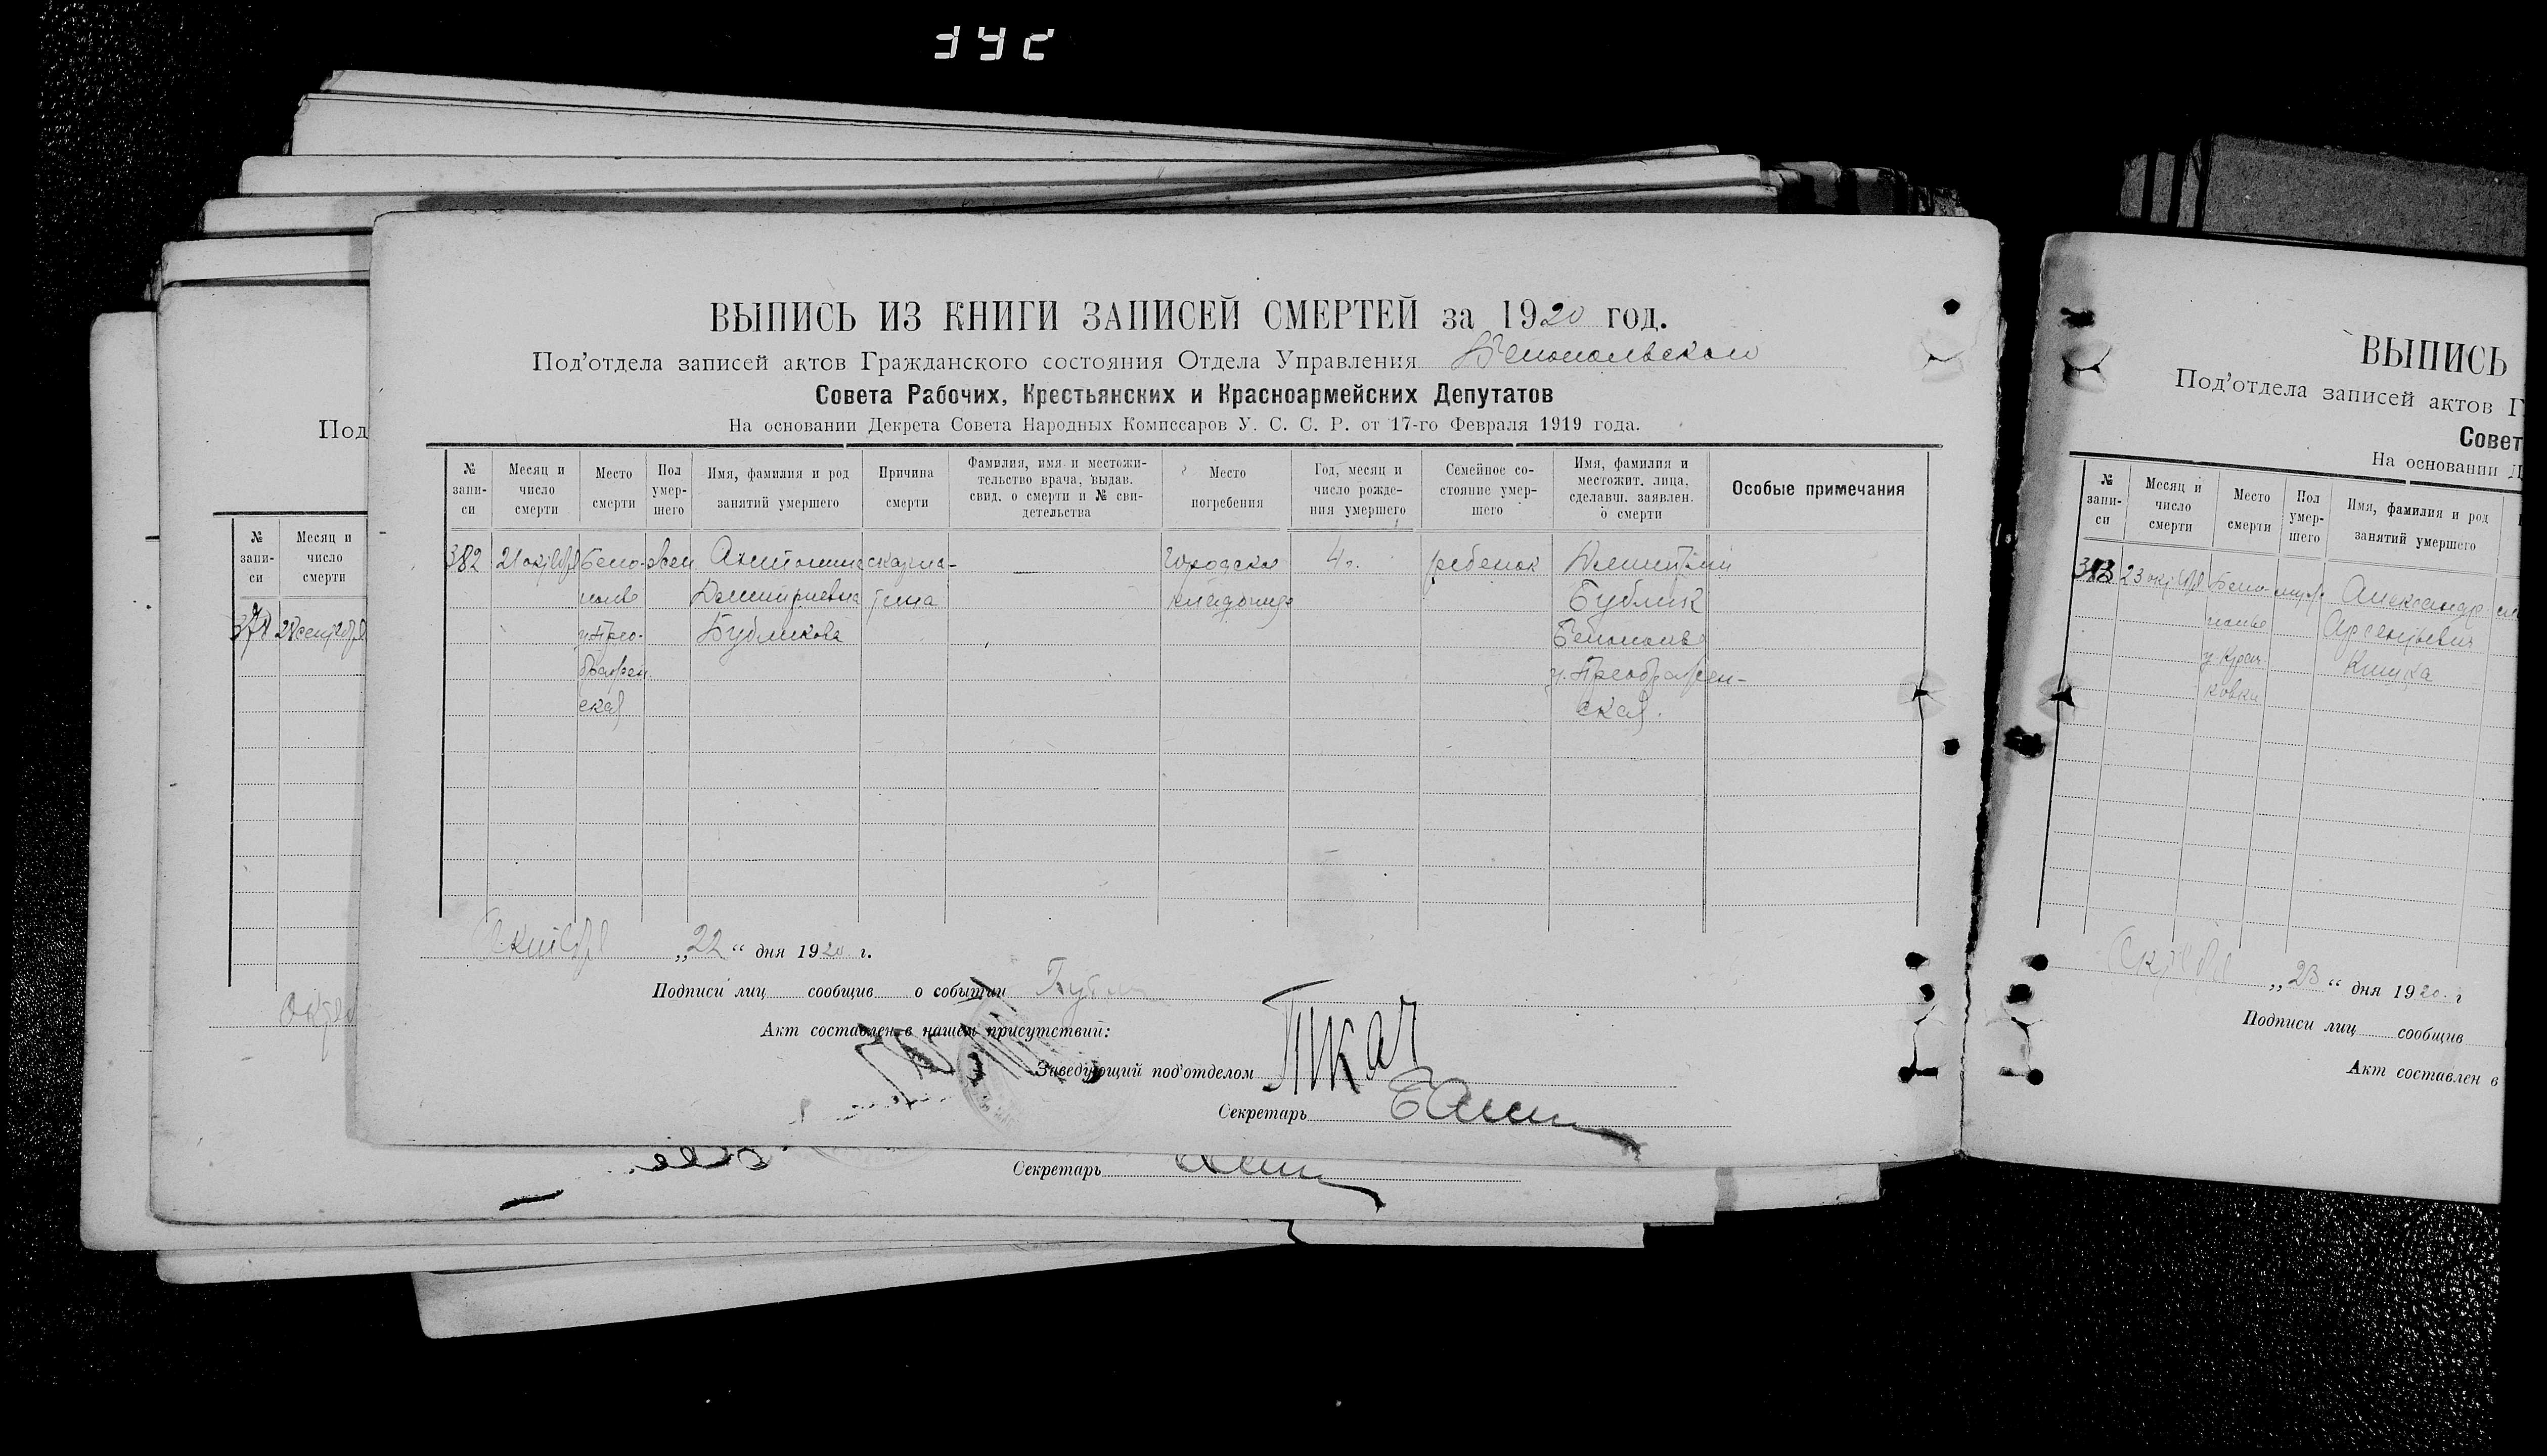 ВЫПИСЬ ИЗ КНИГИ ЗАПИСЕЙ СМЕРТЕЙ за 1920 год.
Под'отдела записей актов Гражданского состояния Отдела Управления Белопольского
Совета Рабочих, Крестьянских и Красноармейских Депутатов
На основании Декрета Совета Народных Комиссаров У. С. С. Р. от 17-го Февраля 1919 года.
№ запи-си
Месяц и число смерти
Место смерти
Пол умер-шего
Имя, фамилия и род занятий умершего
Причина смерти
Фамилия, имя и местожи-тельство врача, выдав. свид. о смерти и № сви-детельства
Место погребения
Год, месяц и число рожде-ния умершего
Семейное со-стояние умер-шего
Имя, фамилия и местожит. лица, сделавш. заявлен. о смерти
Особые примечания
382 21 октября Бело- жен Антонина скарла- — Городское 4 г. ребенок Димитрий
полье Димитриевна тина кладбище Бублик
у. Прео- Бубликова Белополье
бражен у. Преображен-
ская ская.
Октября „22“ дня 1920 г.
Подписи лиц сообщив о событии
Акт составлен в нашем присутствии:
Заведующий под'отделом Ткач
Секретарь
Под
№ запи-си
Месяц и число смерти
Секретарь
ВЫПИСЬ
Под'отдела записей актов Г
Совет
На основании Д
№ запи-си
Месяц и число смерти
Место смерти
Пол умер-шего
Имя, фамилия и род занятий умершего
383 23 октября Бело- муж. Александр
полье Арсентьевич
Октября „23“ дня 1920 г
Подписи лиц сообщив
Акт составлен в